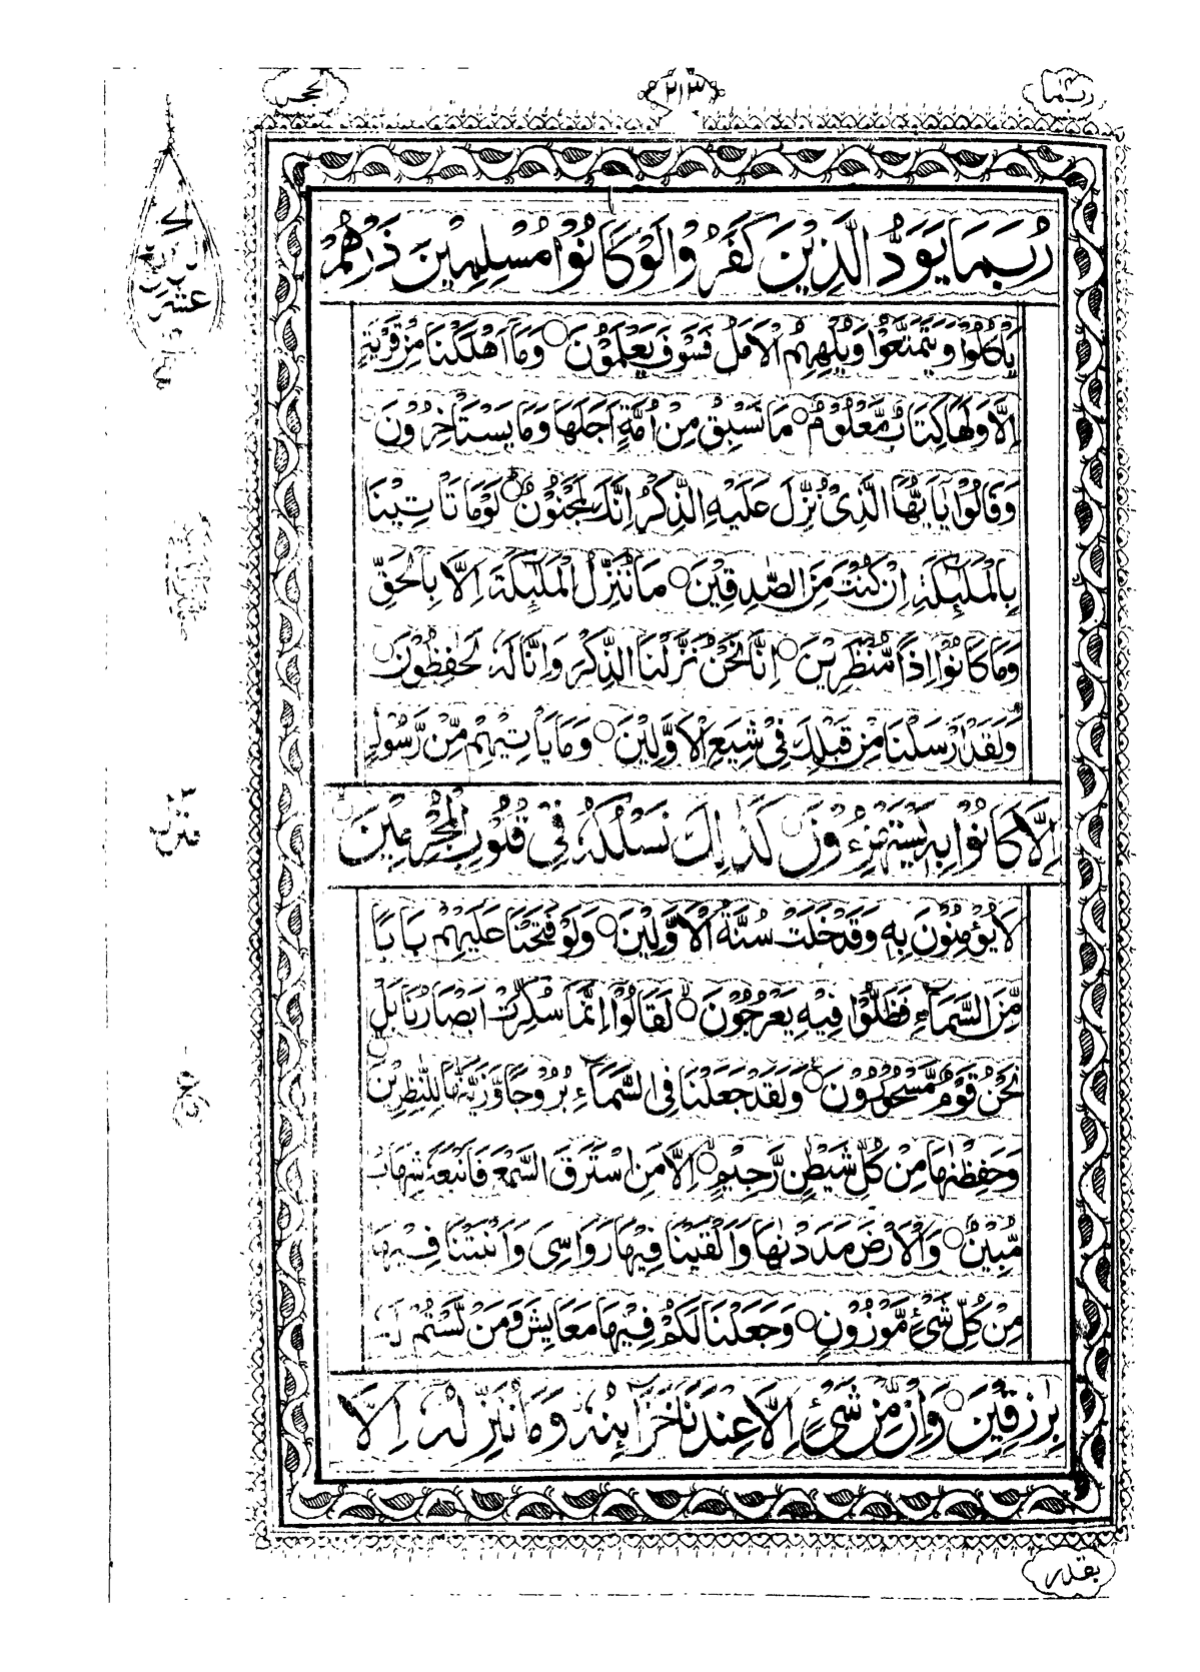 ربما
٢١٣
الحجر
رُبَمَا يَوَدُّ الَّذِيْنَ كَفَرُوْا لَوْ كَانُوْا مُسْلِمِيْنَ ذَرْهُمْ
يَاْكُلُوْا وَيَتَمَتَّعُوْا وَيُلْهِهِمُ الْاَمَلُ فَسَوْفَ يَعْلَمُوْنَ ○ وَمَا اَهْلَكْنَا مِنْ قَرْيَةٍ
اِلَّا وَلَهَا كِتَابٌ مَّعْلُوْمٌ ○ مَا تَسْبِقُ مِنْ اُمَّةٍ اَجَلَهَا وَمَا يَسْتَاْخِرُوْنَ ○
وَقَالُوْا يٰاَيُّهَا الَّذِىْ نُزِّلَ عَلَيْهِ الذِّكْرُ اِنَّكَ لَمَجْنُوْنٌ ○ لَوْ مَا تَاْتِيْنَا
بِالْمَلٰٓئِكَةِ اِنْ كُنْتَ مِنَ الصّٰدِقِيْنَ ○ مَا نُنَزِّلُ الْمَلٰٓئِكَةَ اِلَّا بِالْحَقِّ
وَمَا كَانُوْا اِذًا مُّنْظَرِيْنَ ○ اِنَّا نَحْنُ نَزَّلْنَا الذِّكْرَ وَاِنَّا لَهٗ لَحٰفِظُوْنَ ○
وَلَقَدْ اَرْسَلْنَا مِنْ قَبْلِكَ فِىْ شِيَعِ الْاَوَّلِيْنَ ○ وَمَا يَاْتِيْهِمْ مِّنْ رَّسُوْلٍ
اِلَّا كَانُوْا بِهٖ يَسْتَهْزِءُوْنَ ○ كَذٰلِكَ نَسْلُكُهٗ فِىْ قُلُوْبِ الْمُجْرِمِيْنَ ○
لَا يُؤْمِنُوْنَ بِهٖ وَقَدْ خَلَتْ سُنَّةُ الْاَوَّلِيْنَ ○ وَلَوْ فَتَحْنَا عَلَيْهِمْ بَابًا
مِّنَ السَّمَآءِ فَظَلُّوْا فِيْهِ يَعْرُجُوْنَ ○ لَقَالُوْا اِنَّمَا سُكِّرَتْ اَبْصَارُنَا بَلْ
نَحْنُ قَوْمٌ مَّسْحُوْرُوْنَ ○ وَلَقَدْ جَعَلْنَا فِى السَّمَآءِ بُرُوْجًا وَّزَيَّنّٰهَا لِلنّٰظِرِيْنَ ○
وَحَفِظْنٰهَا مِنْ كُلِّ شَيْطٰنٍ رَّجِيْمٍ ○ اِلَّا مَنِ اسْتَرَقَ السَّمْعَ فَاَتْبَعَهٗ شِهَابٌ
مُّبِيْنٌ ○ وَالْاَرْضَ مَدَدْنٰهَا وَاَلْقَيْنَا فِيْهَا رَوَاسِىَ وَاَنْبَتْنَا فِيْهَا
مِنْ كُلِّ شَىْءٍ مَّوْزُوْنٍ ○ وَجَعَلْنَا لَكُمْ فِيْهَا مَعَايِشَ وَمَنْ لَّسْتُمْ لَهٗ
بِرٰزِقِيْنَ ○ وَاِنْ مِّنْ شَىْءٍ اِلَّا عِنْدَنَا خَزَآئِنُهٗ وَمَا نُنَزِّلُهٗ اِلَّا
عشر
منزل ٣
بقدر